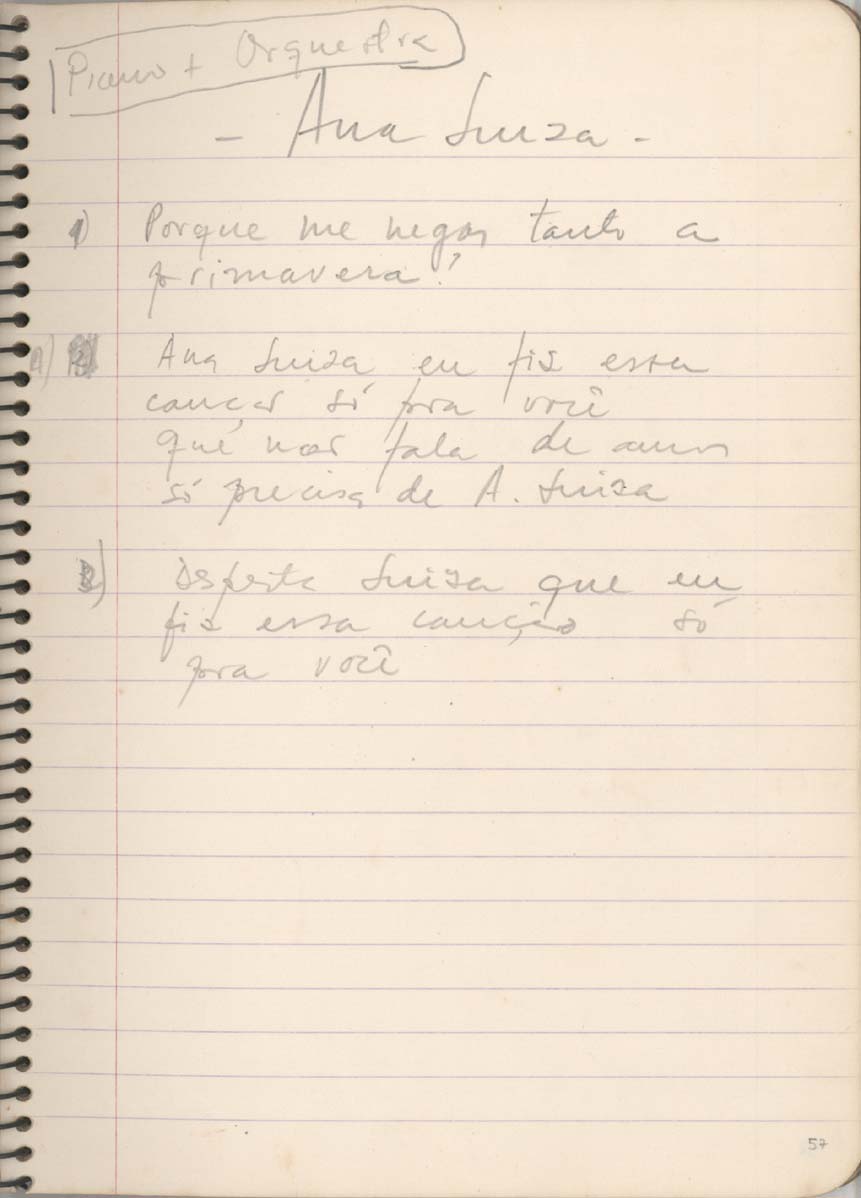 Piano + Orquestra
- Ana Luiza -
1) Porque me negas tanto a
primavera?
1) Ana Luiza eu fiz essa
canção só pra você
que não fala de amor
só precisa de A. Luiza
2) Desperta Luiza que eu
fiz essa canção só
pra você
57